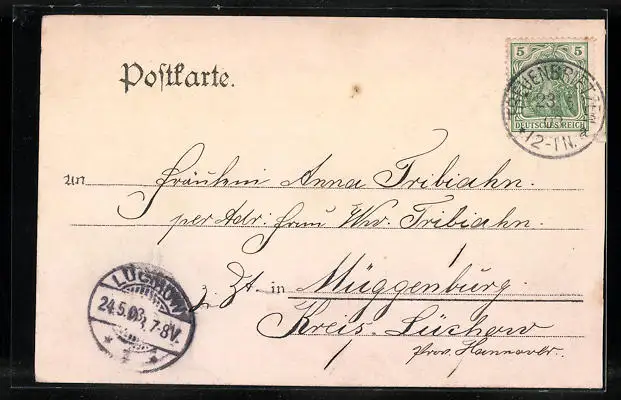 Postkarte.
5 5
DEUTSCHES REICH
TREUENBRIETZEN
23 5
03
* 12-1N. a
An
Fräulein Anna Tribiahn.
per Adr: Frau Ww. Tribiahn.
z. Zt in Müggenburg.
Kreis. Lüchow
Prov. Hannover.
LÜCHOW
24.5.03. 7-8V.